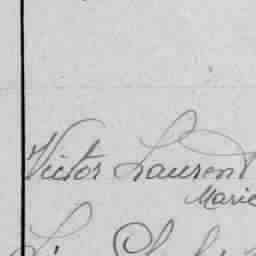 Victor Laurent
Marie